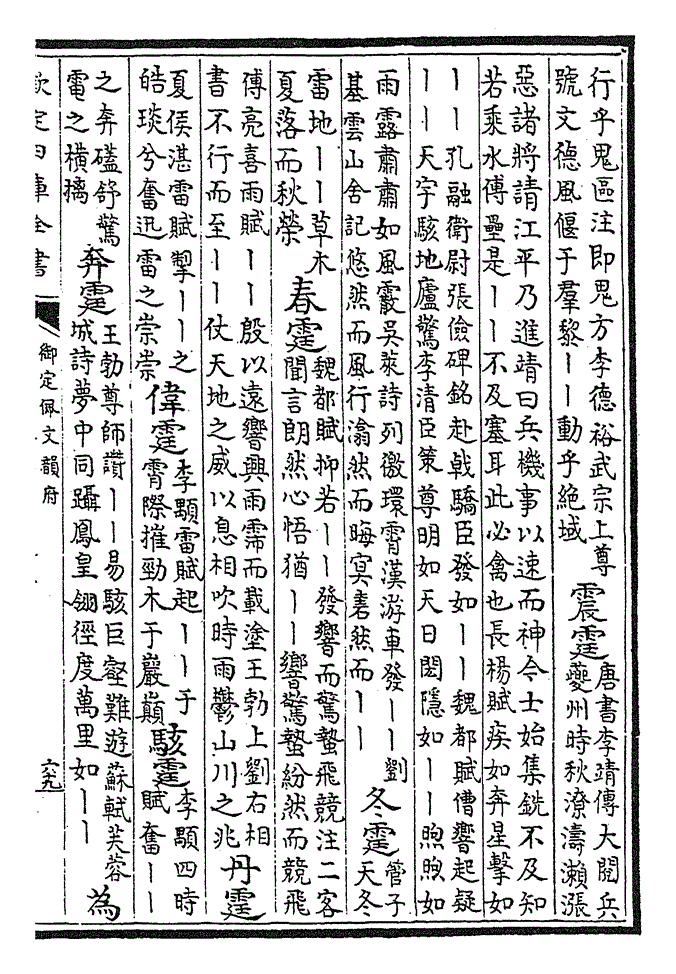 行乎鬼區注即鬼方李德裕武宗上尊
號文德風偃于羣黎丨丨動乎絶域
震霆
唐書李靖傳大閱兵
夔州時秋潦濤瀬漲
惡諸將請江平乃進靖曰兵機事以速而神今士始集銑不及知
若乘水傅壘是丨丨不及塞耳此必禽也長楊賦疾如奔星擊如
丨丨孔融衛尉張儉碑銘赴戟驕臣發如丨丨魏都賦僣響起疑
丨丨天字駭地廬驚李清臣策尊明如天日閎隱如丨丨煦煦如
雨露肅肅如風霰吳萊詩列徼環霄漢游車發丨丨劉
基雲山舍記悠然而風行滃然而晦冥砉然而丨丨
冬霆
管子
天冬
雷地丨丨草木
夏落而秋榮
春霆
魏都賦抑若丨丨發響而驚蟄飛競注二客
聞言朗然心悟猶丨丨響驚蟄紛然而競飛
傅亮喜雨賦丨丨殷以遠響興雨霈而載塗王勃上劉右相
書不行而至丨丨仗天地之威以息相吹時雨鬱山川之兆
丹霆
夏侯湛雷賦掣丨丨之
皓琰兮奮迅雷之崇崇
偉霆
李顒雷賦起丨丨于
霄際摧勁木于巖巔
駭霆
李顒四時
賦奮丨丨
之奔礚舒驚
電之橫摛
奔霆
王勃尊師讃丨丨易駭巨壑難遊蘇軾芙蓉
城詩夢中同躡鳳皇翎徑度萬里如丨丨
為
欽定四庫全書
御定佩文韻府
六九